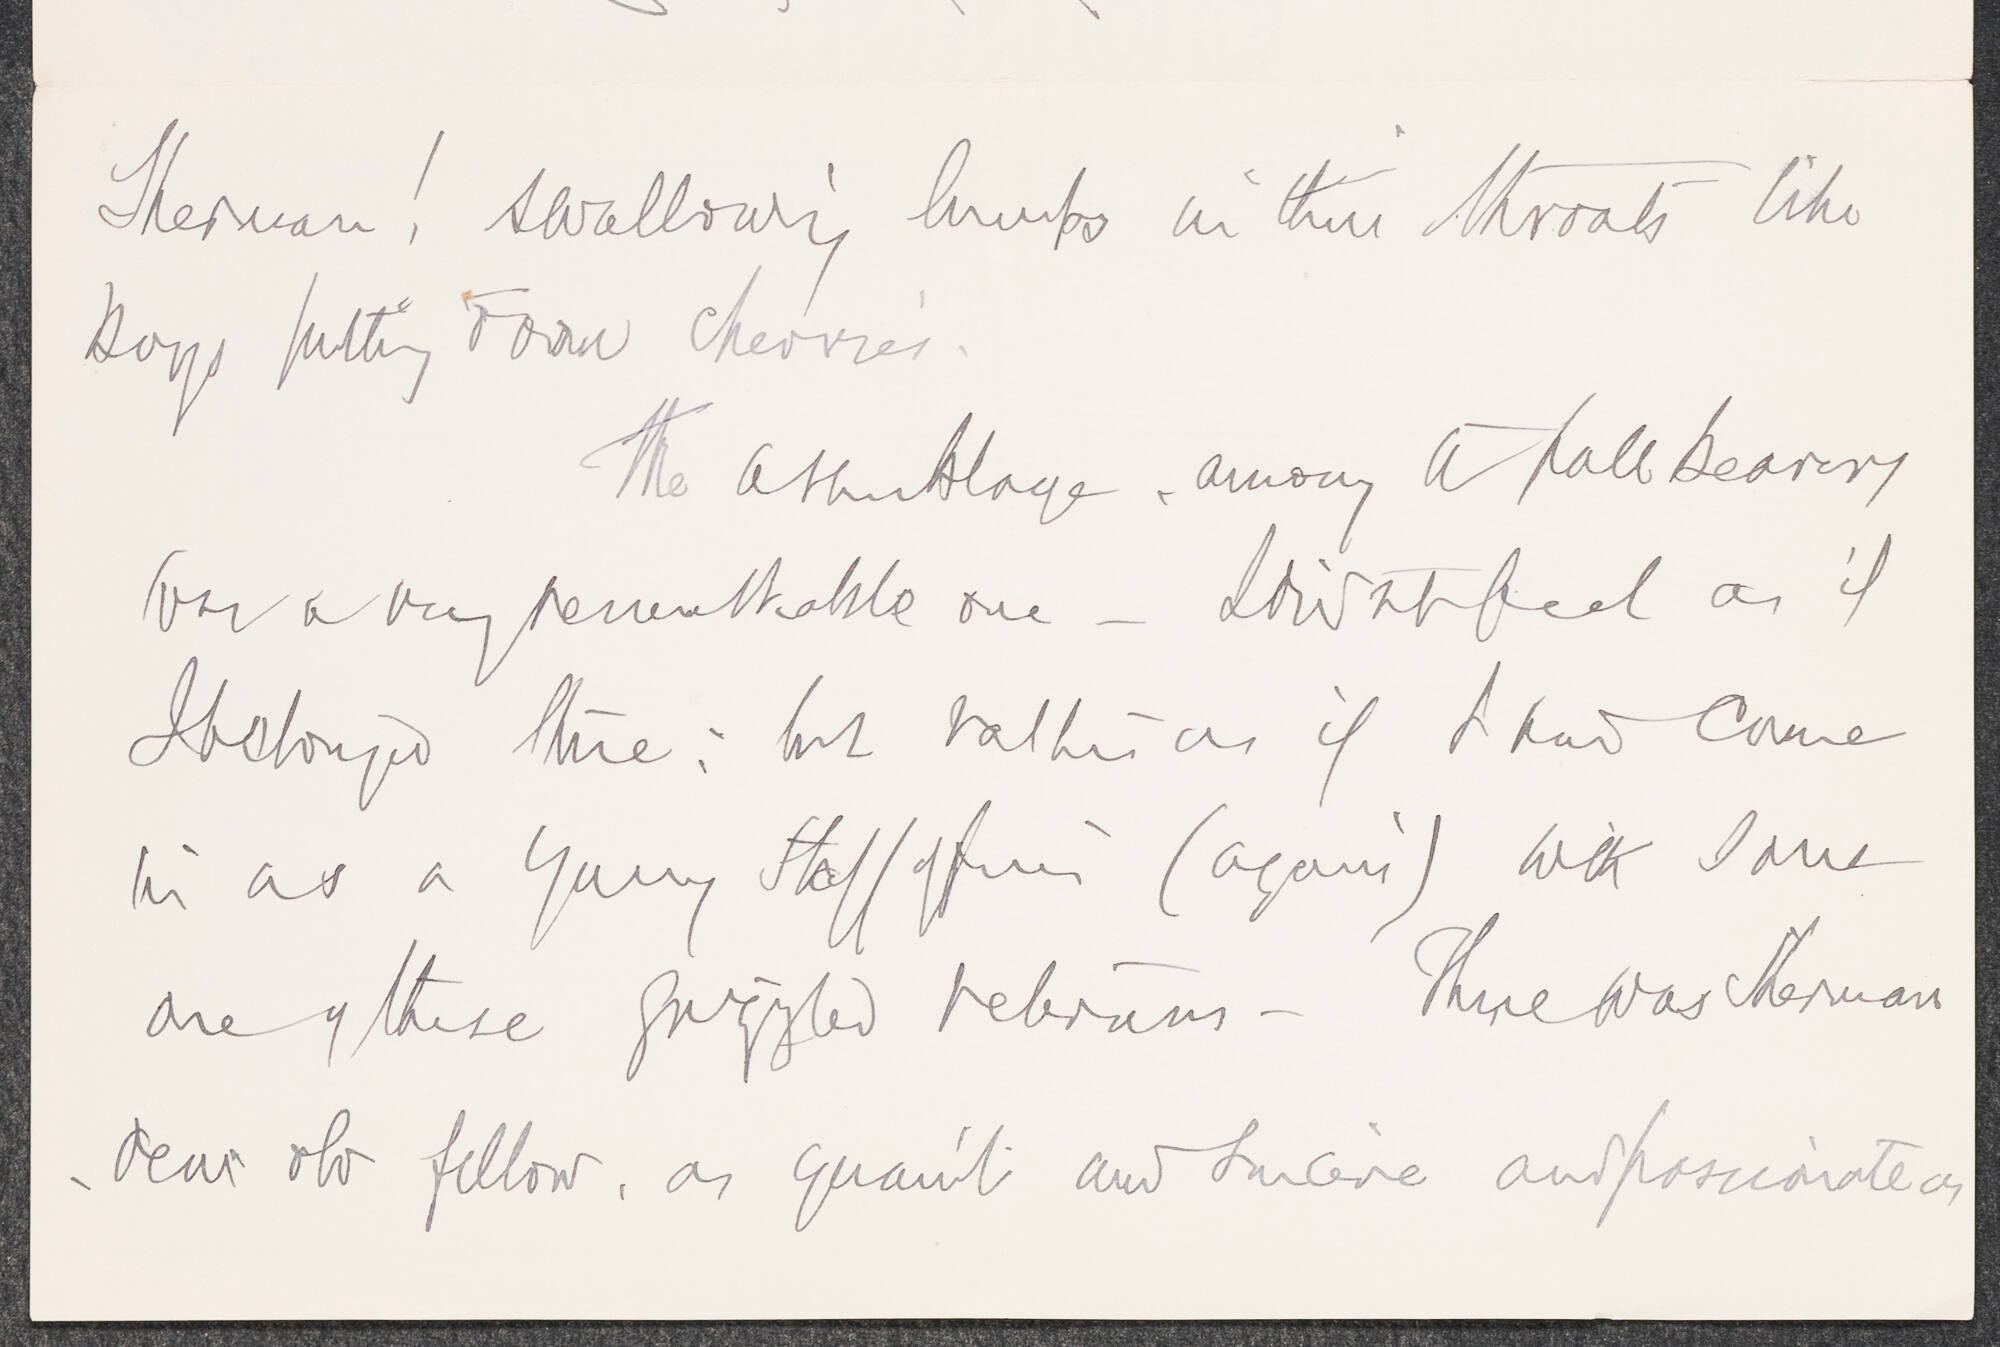 Sherman! swallowing lumps in their throats like
boys putting down cherries.
The assemblage, among pall bearers
was a very remarkable one — I didn't feel as if
I belonged there; but rather as if I had come
in as a young staff officer (again) with some
one of these grizzled veterans — There was Sherman
, dear old fellow, as quaint and sincere and passionate as